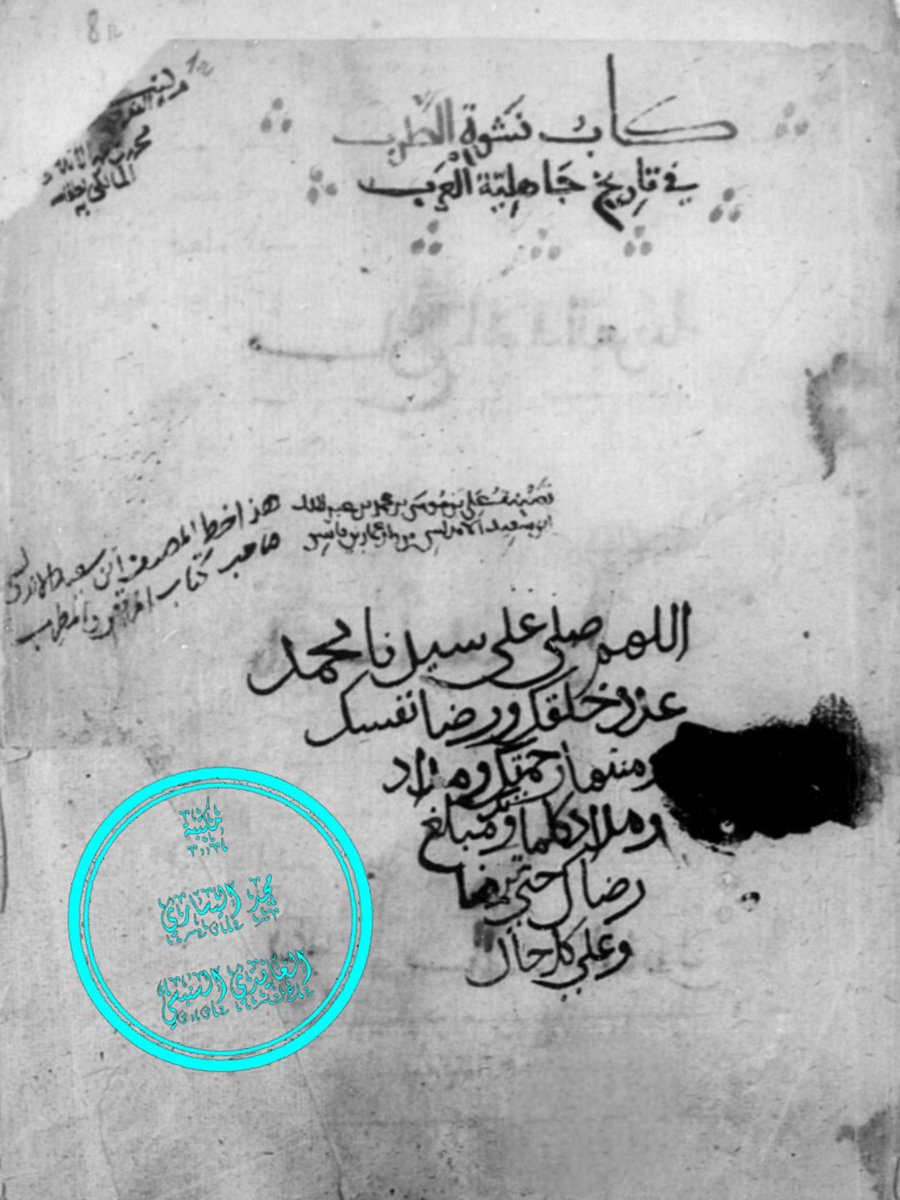 كتاب نشوة الطرب
في تاريخ جاهلية العرب
محمد
المالكي
تصنيف علي بن موسى بن محمد بن عبد الملك
ابن سعيد الاندلسي من ولد عمار بن ياسر
هذا خط المصنف ابن سعيد الاندلسي
صاحب كتاب المرقص والمطرب
اللهم صلي على سيدنا محمد
عدد خلقك ورضا نفسك
ومنتها رحمتك ومداد
ومداد كلما ومبلغ
رضاك حتى ترضا
وعلى كل حال
مكتبة
محمد